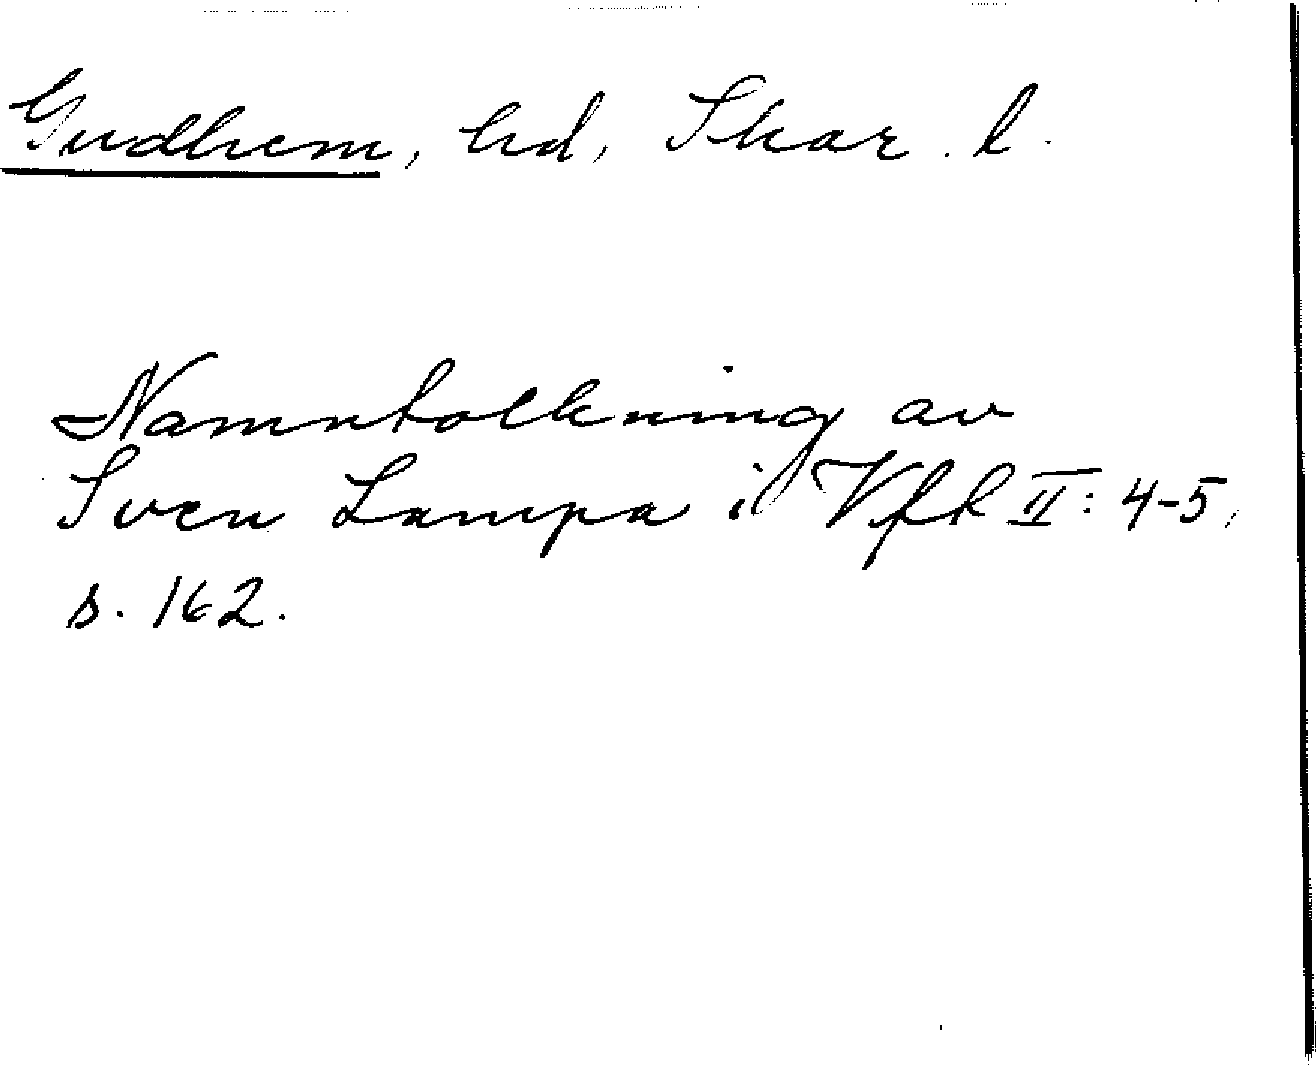 Gudhem, hd, Skar. l.
Namntolkning av
Sven Lampa i Vfk II: 4-5,
s. 162.